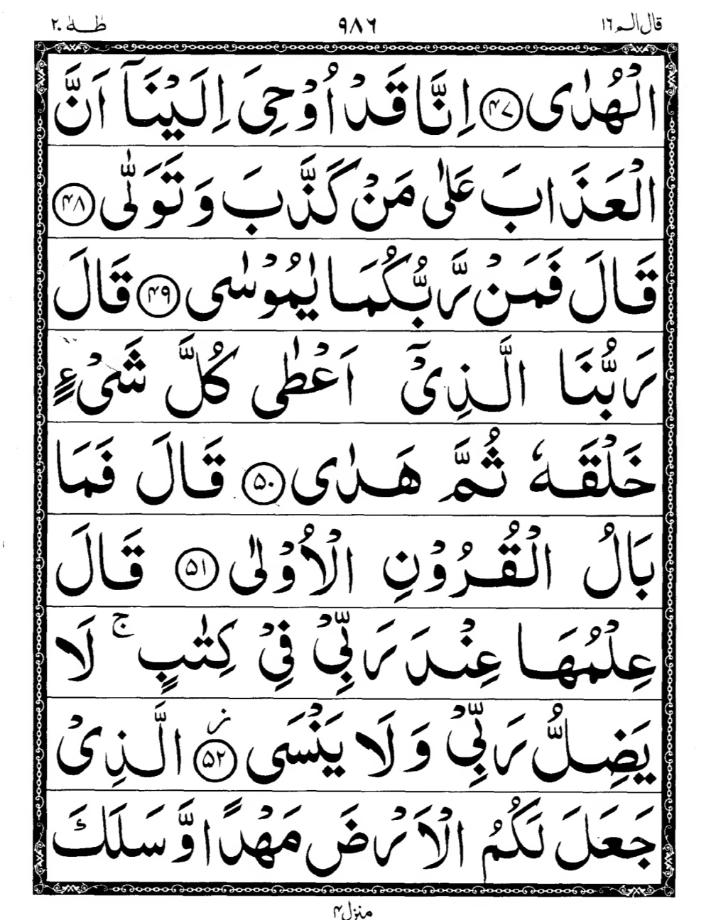 قال الم ١٦ ٩٨٦ طٰهٰ ٢٠
الْهُدٰى ﴿۴۷﴾ اِنَّا قَدْ اُوْحِىَ اِلَيْنَاۤ اَنَّ
الْعَذَابَ عَلٰى مَنْ كَذَّبَ وَتَوَلّٰى ﴿۴۸﴾
قَالَ فَمَنْ رَّبُّكُمَا يٰمُوْسٰى ﴿۴۹﴾ قَالَ
رَبُّنَا الَّذِىْۤ اَعْطٰى كُلَّ شَىْءٍ
خَلْقَهٗ ثُمَّ هَدٰى ﴿۵۰﴾ قَالَ فَمَا
بَالُ الْقُرُوْنِ الْاُوْلٰى ﴿۵۱﴾ قَالَ
عِلْمُهَا عِنْدَ رَبِّىْ فِىْ كِتٰبٍ ۚ لَا
يَضِلُّ رَبِّىْ وَلَا يَنْسَى ﴿۵۲﴾ ز الَّذِىْ
جَعَلَ لَكُمُ الْاَرْضَ مَهْدًا وَّسَلَكَ
منزل ۴